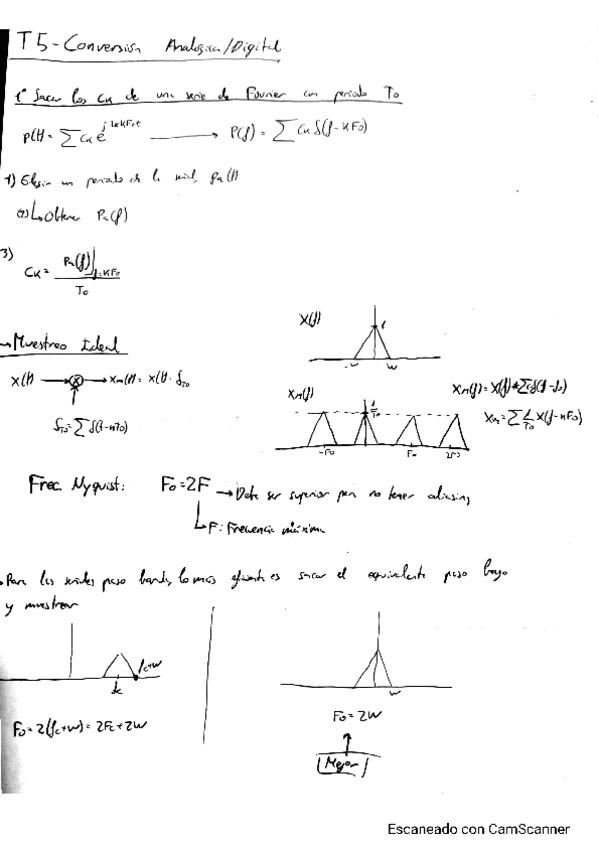 T5-Conversión Analógica/Digital
1º Sacar los Ck de una serie de Fourier con periodo To
p(t) = ∑ Ck e^{j2πkFot} → P(f) = ∑ Ck δ(f-kFo)
1) Elegir un periodo de la señal pa(t)
2) ↳ Obtener Pa(f)
3) Ck = Pa(f)|f=kFo / To
→ Muestreo Ideal
X(f)
1
-W W
x(t) → ⊗ → xm(t) = x(t)·δTo
δTo = ∑ δ(t-nTo)
Xm(f)
1/To
-Fo Fo 2Fo
Xm(f) = X(f) * ∑ Cδ(f-fo)
Xm = ∑ 1/To X(f-nFo)
Frec. Nyquist: Fo = 2F → Debe ser superior para no tener aliasing
↳ F: Frecuencia máxima
Para las señales paso banda, lo más eficiente es sacar el equivalente paso bajo
y muestrear
fc+w
fc
Fo = 2(fc+w) = 2Fc+2W
W
Fo = 2W
Mejor
Escaneado con CamScanner